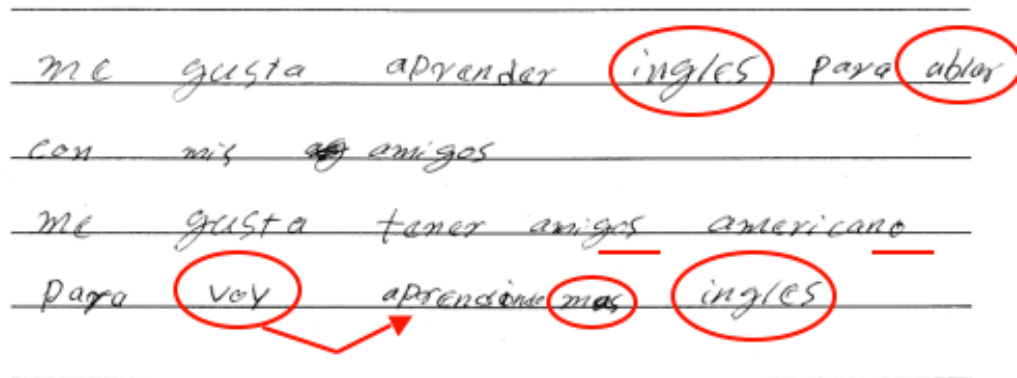 me gusta aprender ingles para ablar
con mis amigos
me gusta tener amigos americano
para voy aprendiendo mas ingles